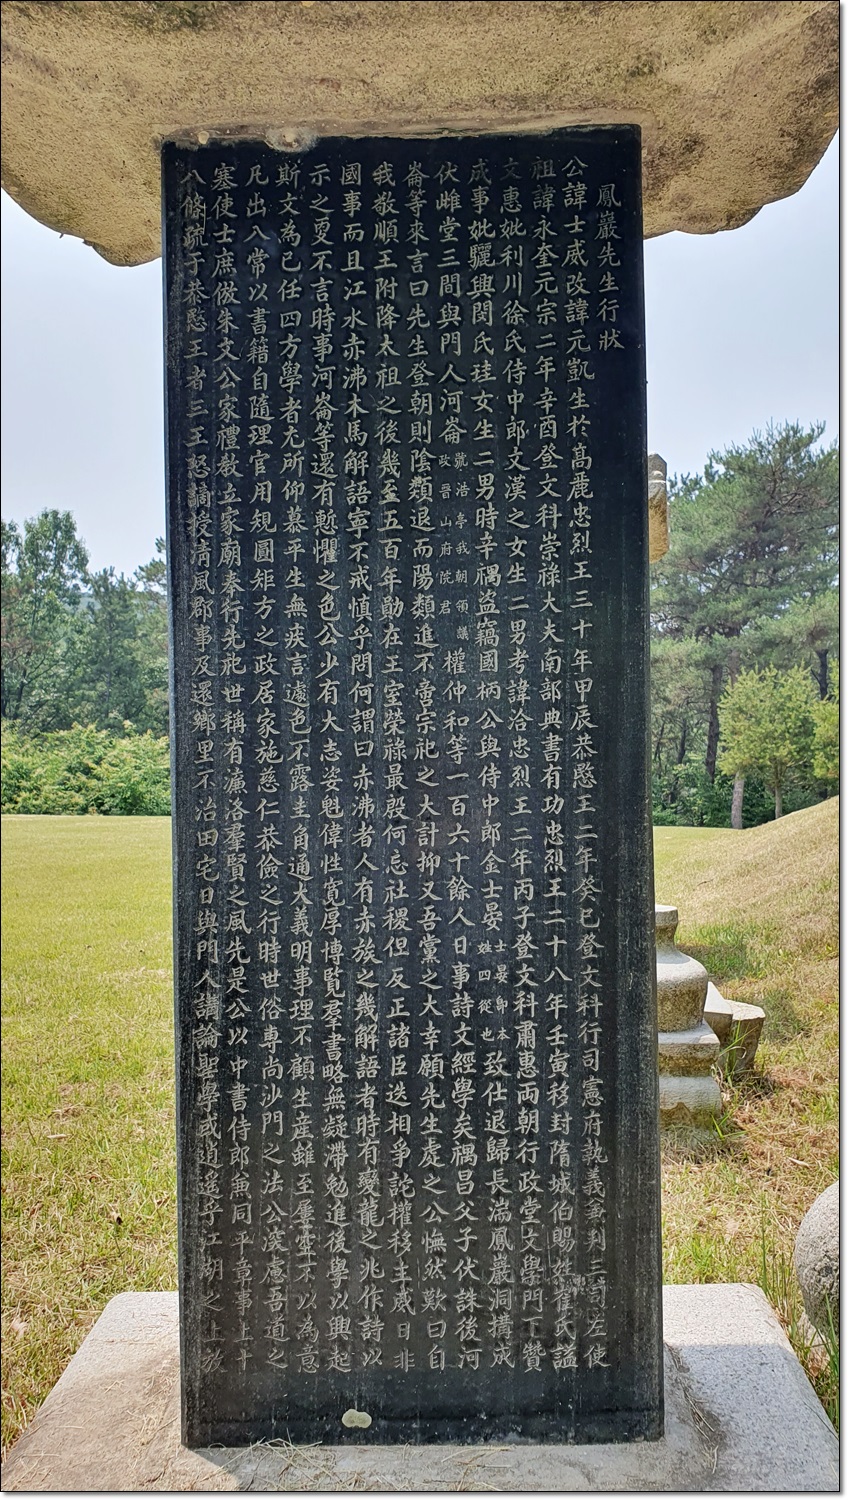 鳳巖先生行狀
公諱士威改諱元凱生於高麗忠烈王三十年甲辰恭愍王二年癸巳登文科行司憲府執義兼判三司左使
祖諱永奎元宗二年辛酉登文科崇祿大夫南部典書有功忠烈王二十八年壬寅移封隋城伯賜姓崔氏諡
文惠妣利川徐氏侍中郎文漢之女生二男考諱洽忠烈王二年丙子登文科肅惠両朝行政堂文學門下贊
成事妣驪興閔氏珪女生二男時辛禑盜竊國柄公與侍中郎金士晏士晏即本姓四從也致仕退歸長湍鳳巖洞搆成
伏雌堂三間與門人河崙號浩亭我朝領議政晋山府院君權仲和等一百六十餘人日事詩文經學矣禑昌父子伏誅後河
崙等來言曰先生登朝則陰類退而陽類進不啻宗祀之大計抑又吾黨之大幸願先生處之公憮然歎曰自
我敬順王附降太祖之後幾至五百年勛在王室榮祿最殷何忘社稷但反正諸臣迭相爭詫權移主威日非
國事而且江水赤沸木馬解語寧不戒慎乎問何謂曰赤沸者人有赤族之幾解語者時有變龍之兆作詩以
示之更不言時事河崙等還有慙懼之色公少有大志姿魁偉性寬厚博覧羣書略無凝滯勉進後學以興起
斯文為已任四方學者尤所仰慕平生無疾言遽色不露圭角通大義明事理不顧生産雖至屢空不以為意
凡出入常以書籍自隨理官用規圓矩方之政居家施慈仁恭儉之行時世俗專尚沙門之法公深慮吾道之
塞使士庶倣朱文公家禮教立家廟奉行先祀世稱有濂洛羣賢之風先是公以中書侍郎兼同平章事上十
八條疏于恭愍王者三王怒謫授清風郡事及還鄉里不治田宅日與門人講論聖學或逍遙乎江湖之上放